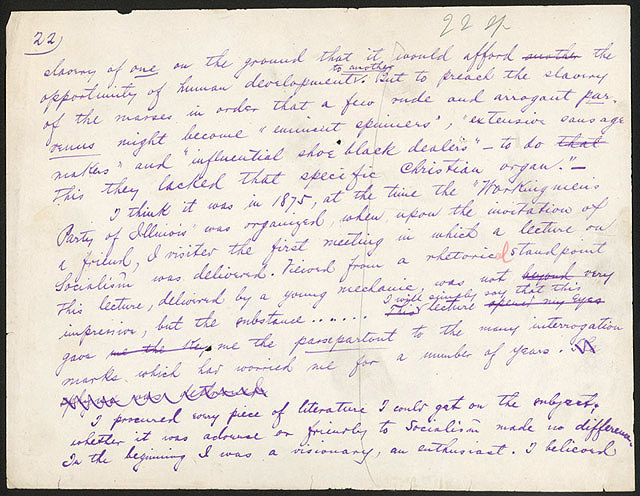 22
22 ep
slavery of one on the ground that it would afford another the
to another
opportunity of human development. But to preach the slavery
of the masses in order that a few rude and arrogant par-
venus might become "eminent spinners", "extensive sausage
makers" and "influential shoe black dealers" – to do that
This they lacked that specific Christian organ." –
I think it was in 1875, at the time the "Workingmen's
Party of Illinois" was organized, when upon the invitation of
a friend, I visited the first meeting in which a lecture on
Socialism was delivered. Viewed from a rhetorical standpoint
This lecture, delivered by a young mechanic, was not beyond very
impressive, but the substance....... I will simply say that this
This lecture opened my eyes
gave me the key me the passepartout to the many interrogation
marks which had worried me for a number of years.
I procured every piece of literature I could get on the subject,
whether it was adverse or friendly to Socialism made no difference.
In the beginning I was a visionary, an enthusiast. I believed